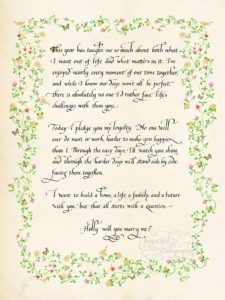 This year has taught me so much about both what
I want out of life and what matters in it. I've
enjoyed nearly every moment of our time together,
and while I know our days won't all be perfect,
there is absolutely no one I'd rather face life's
challenges with than you.
Today I pledge you my loyalty. No one will
ever do more or work harder to make you happier
than I. Through the easy days, I'll watch you shine
and through the harder days we'll stand side by side
facing them together.
I want to build a home, a life, a family, and a future
with you, but that all starts with a question –
Holly will you marry me?